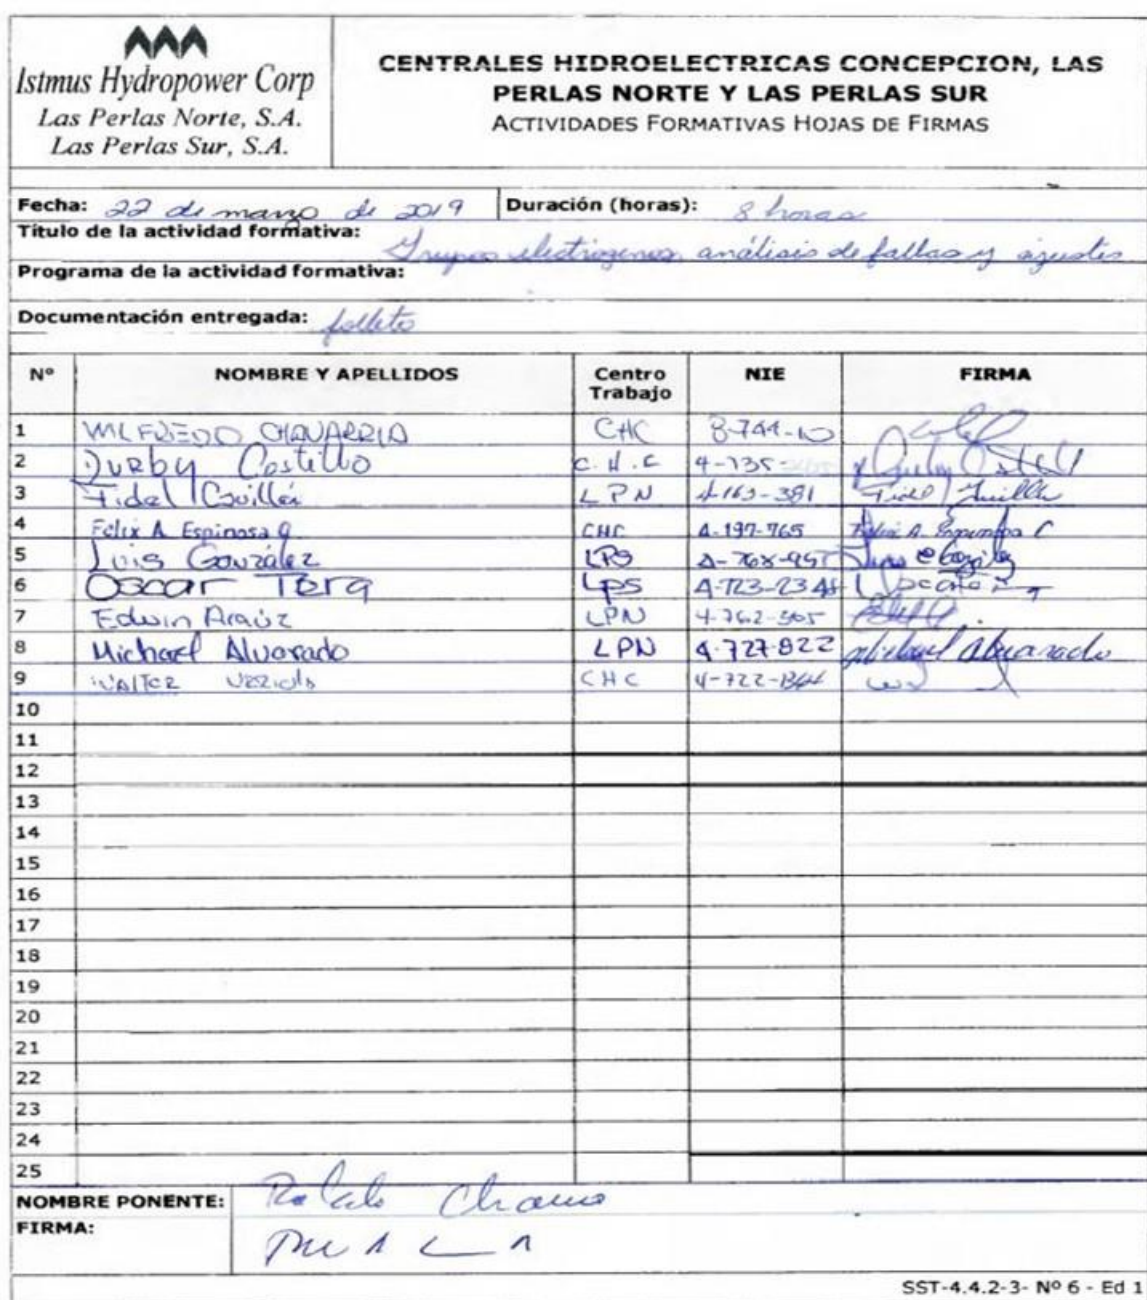 Istmus Hydropower Corp
Las Perlas Norte, S.A.
Las Perlas Sur, S.A.
CENTRALES HIDROELECTRICAS CONCEPCION, LAS
PERLAS NORTE Y LAS PERLAS SUR
ACTIVIDADES FORMATIVAS HOJAS DE FIRMAS
Fecha: 22 de marzo de 2019 Duración (horas): 8 horas
Título de la actividad formativa: Grupos electrogenos, análisis de fallas y ajustes
Programa de la actividad formativa:
Documentación entregada: folleto
Nº NOMBRE Y APELLIDOS Centro Trabajo NIE FIRMA
1 WILFREDO CHAVARRIA CHC 8-744-10
2 Durby Castillo C.H.C 4-735-
3 Fidel Guillén LPN 4-163-381 Fidel Guillen
4 Felix A. Espinosa CHC 4-197-765 Felix A. Espinosa C
5 Luis González LPS 4-768-957 Luis González
6 Oscar LPS 4-723-234 Oscar
7 Edwin Araúz LPN 4-762-305
8 Michael Alvarado LPN 4-727-822 Michael Alvarado
9 WALTER CHC 4-722-1344
10
11
12
13
14
15
16
17
18
19
20
21
22
23
24
25
NOMBRE PONENTE:
FIRMA:
SST-4.4.2-3- Nº 6 - Ed 1